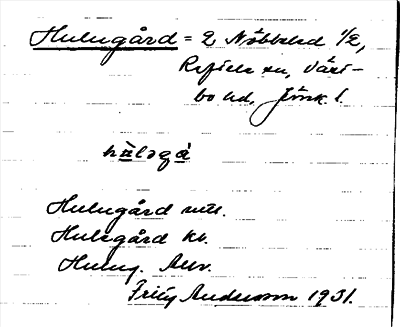 Hulugård = 2 Nöbbeled 1/2,
Reftele sn, Västbo hd, Jönk. l.
hùləgɑ̀
Hulugård utt.
Hulegård kb.
Hulug. Allv.
Fritz Andersson 1931.